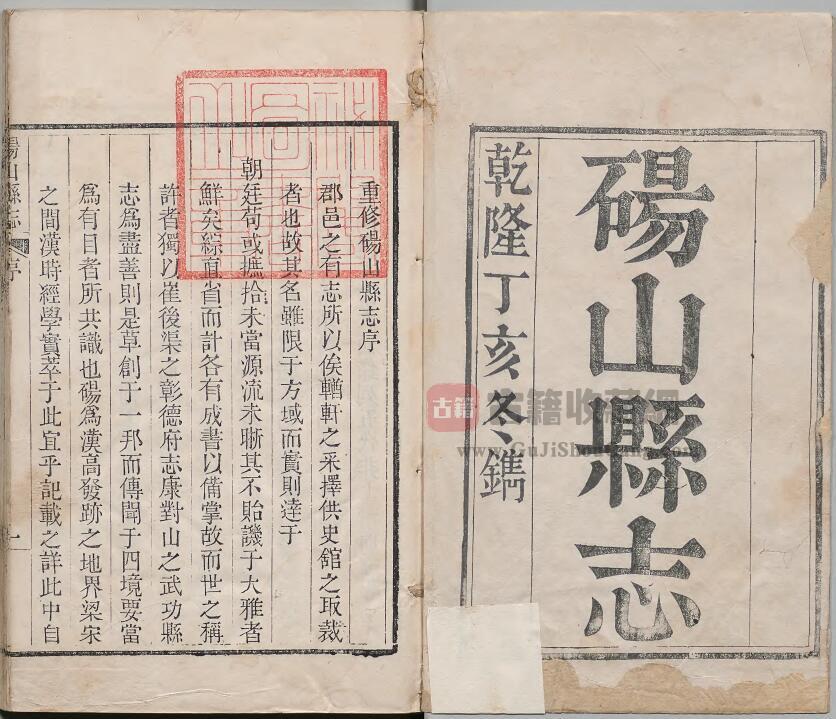 碭山縣志
乾隆丁亥冬鐫
重修碭山縣志序
郡邑之有志所以俟輶軒之采擇供史館之取裁
者也故其名雖限于方域而實則達于
朝廷苟或摭拾未當源流未晰其不貽譏于大雅者
鮮矣綜直省而計各有成書以備掌故而世之稱
許者獨以崔後渠之彰德府志康對山之武功縣
志爲盡善則是草創于一邦而傳聞于四境要當
爲有目者所共識也碭爲漢高發跡之地界梁宋
之間漢時經學實萃于此宜乎記載之詳此中自
碭山縣志
序
一
古籍
古籍收藏網
www.GuJiShouCang.com